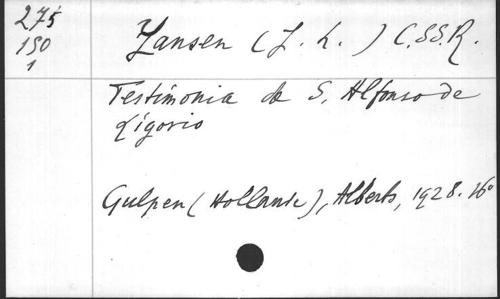 275
150
1
Jansen (J. L.) C.SS.R.
Testimonia de S. Alfonso de
Ligorio
Gulpen (Hollande), Alberts, 1928. 16°